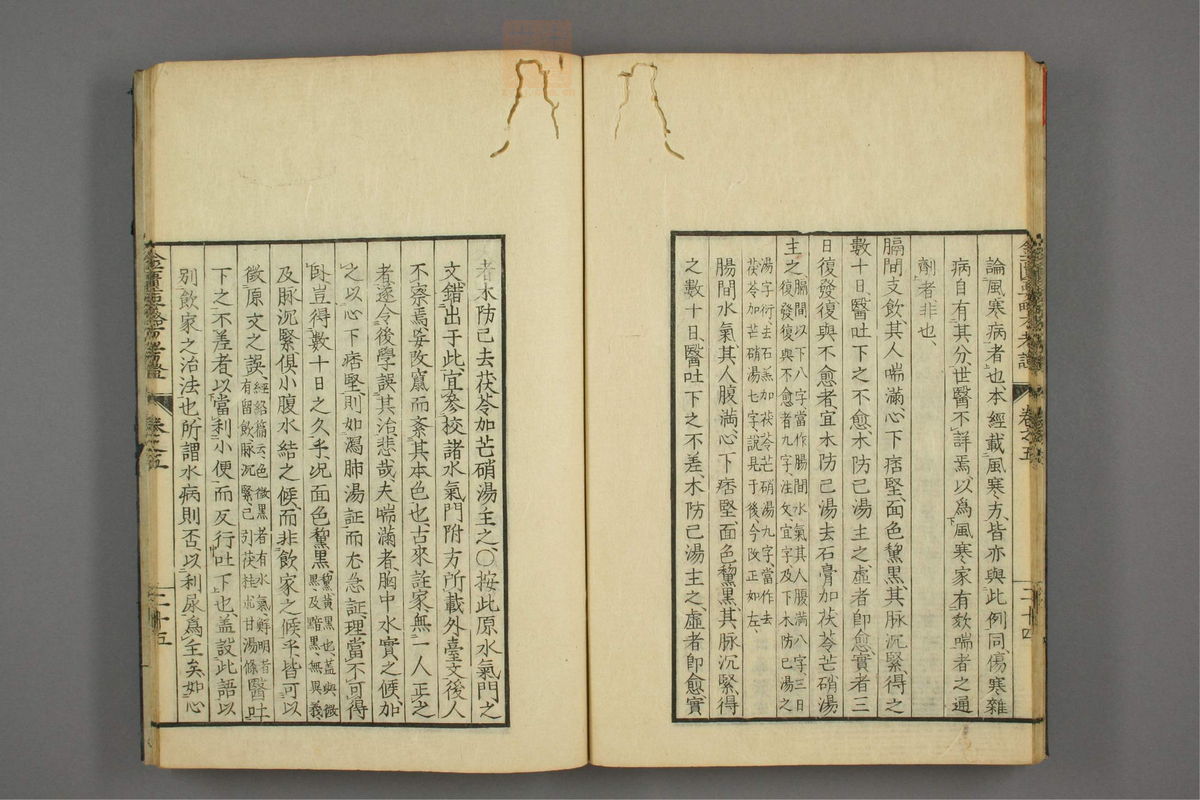 論風寒病者也本經載風寒方皆亦與此例同傷寒雜
病自有其分世醫不詳焉以爲風寒家有欬喘者之通
劑者非也
膈間支飲其人喘滿心下痞堅面色黧黑其脉沉緊得之
數十日醫吐下之不愈木防己湯主之虛者卽愈實者三
日復發復與不愈者宜木防己湯去石膏加茯苓芒硝湯
主之膈間以下八字當作腸間水氣其人腹滿八字三日
復發復與不愈者九字注文宜字及下木防己湯之
湯字衍去石羔加茯苓芒硝湯九字當作去
茯苓加芒硝湯七字說見于後今改正如左
腸間水氣其人腹滿心下痞堅面色黧黑其脉沉緊得
之數十日醫吐下之不差木防己湯主之虛者卽愈實
卷之五
二十四
者木防己去茯苓加芒硝湯主之○按此原水氣門之
文錯出于此宜參校諸水氣門附方所載外臺文後人
不察焉妄改竄而紊其本色也古來註家無一人正之
者遂令後學誤其治悲哉夫喘滿者胸中水實之候加
之以心下痞堅則如瀉肺湯証而尤急証理當不可得
臥豈得數十日之久乎况面色黧黑黧黃黑也蓋與微
黑及黯黑無異義
及脉沉緊俱小腹水結之候而非飲家之候乎皆可以
徵原文之誤經絡篇云色微黑者有水氣鮮明者
有留飲脉沉緊己下引茯桂朮甘湯條醫吐
下之不差者以當利小便而反行吐下也蓋設此語以
別飲家之治法也所謂水病則否以利尿爲主矣如心
金匱要略方考證
卷之五
二十五